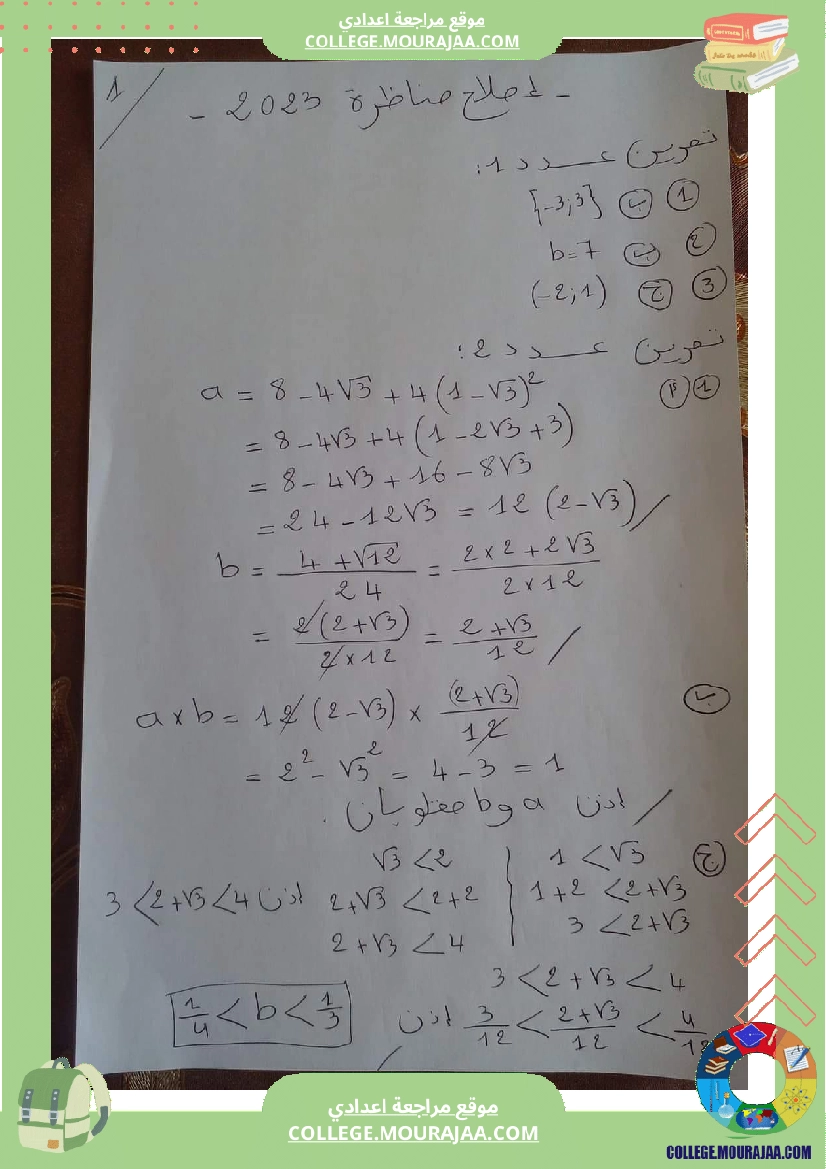 موقع مراجعة اعدادي
COLLEGE.MOURAJAA.COM
1/
- إصلاح مناظرة 2023 -
تمرين عدد 1:
1 ب {-3;3}
2 ب b=7
3 ج (-2;1)
تمرين عدد 2:
1 أ a = 8 - 4√3 + 4(1-√3)²
= 8 - 4√3 + 4(1 - 2√3 + 3)
= 8 - 4√3 + 16 - 8√3
= 24 - 12√3 = 12 (2-√3)/
b = (4+√12)/24 = (2×2+2√3)/(2×12)
= 2(2+√3)/(2×12) = (2+√3)/12 /
ب a×b = 12 (2-√3) × (2+√3)/12
= 2² - √3² = 4 - 3 = 1
/ اذن a و b مقلوبان.
ج 1 <√3 | √3 <2
1+2 <2+√3 | 2+√3 <2+2 اذن 3 <2+√3 <4
3 <2+√3 | 2+√3 <4
3 <2+√3 < 4
3/12 < (2+√3)/12 < 4/12 اذن 1/4 < b < 1/3
/
موقع مراجعة اعدادي
COLLEGE.MOURAJAA.COM
COLLEGE.MOURAJAA.COM